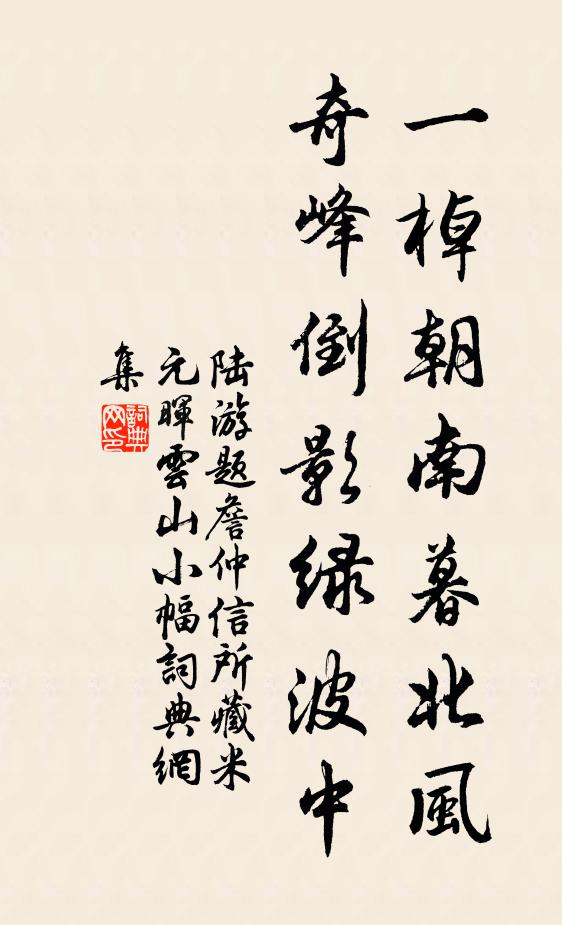 一棹朝南暮北風
奇峰倒影绿波中
陆游題詹仲信所藏米
元暉雲山小幅詞典網
集
詞典网印